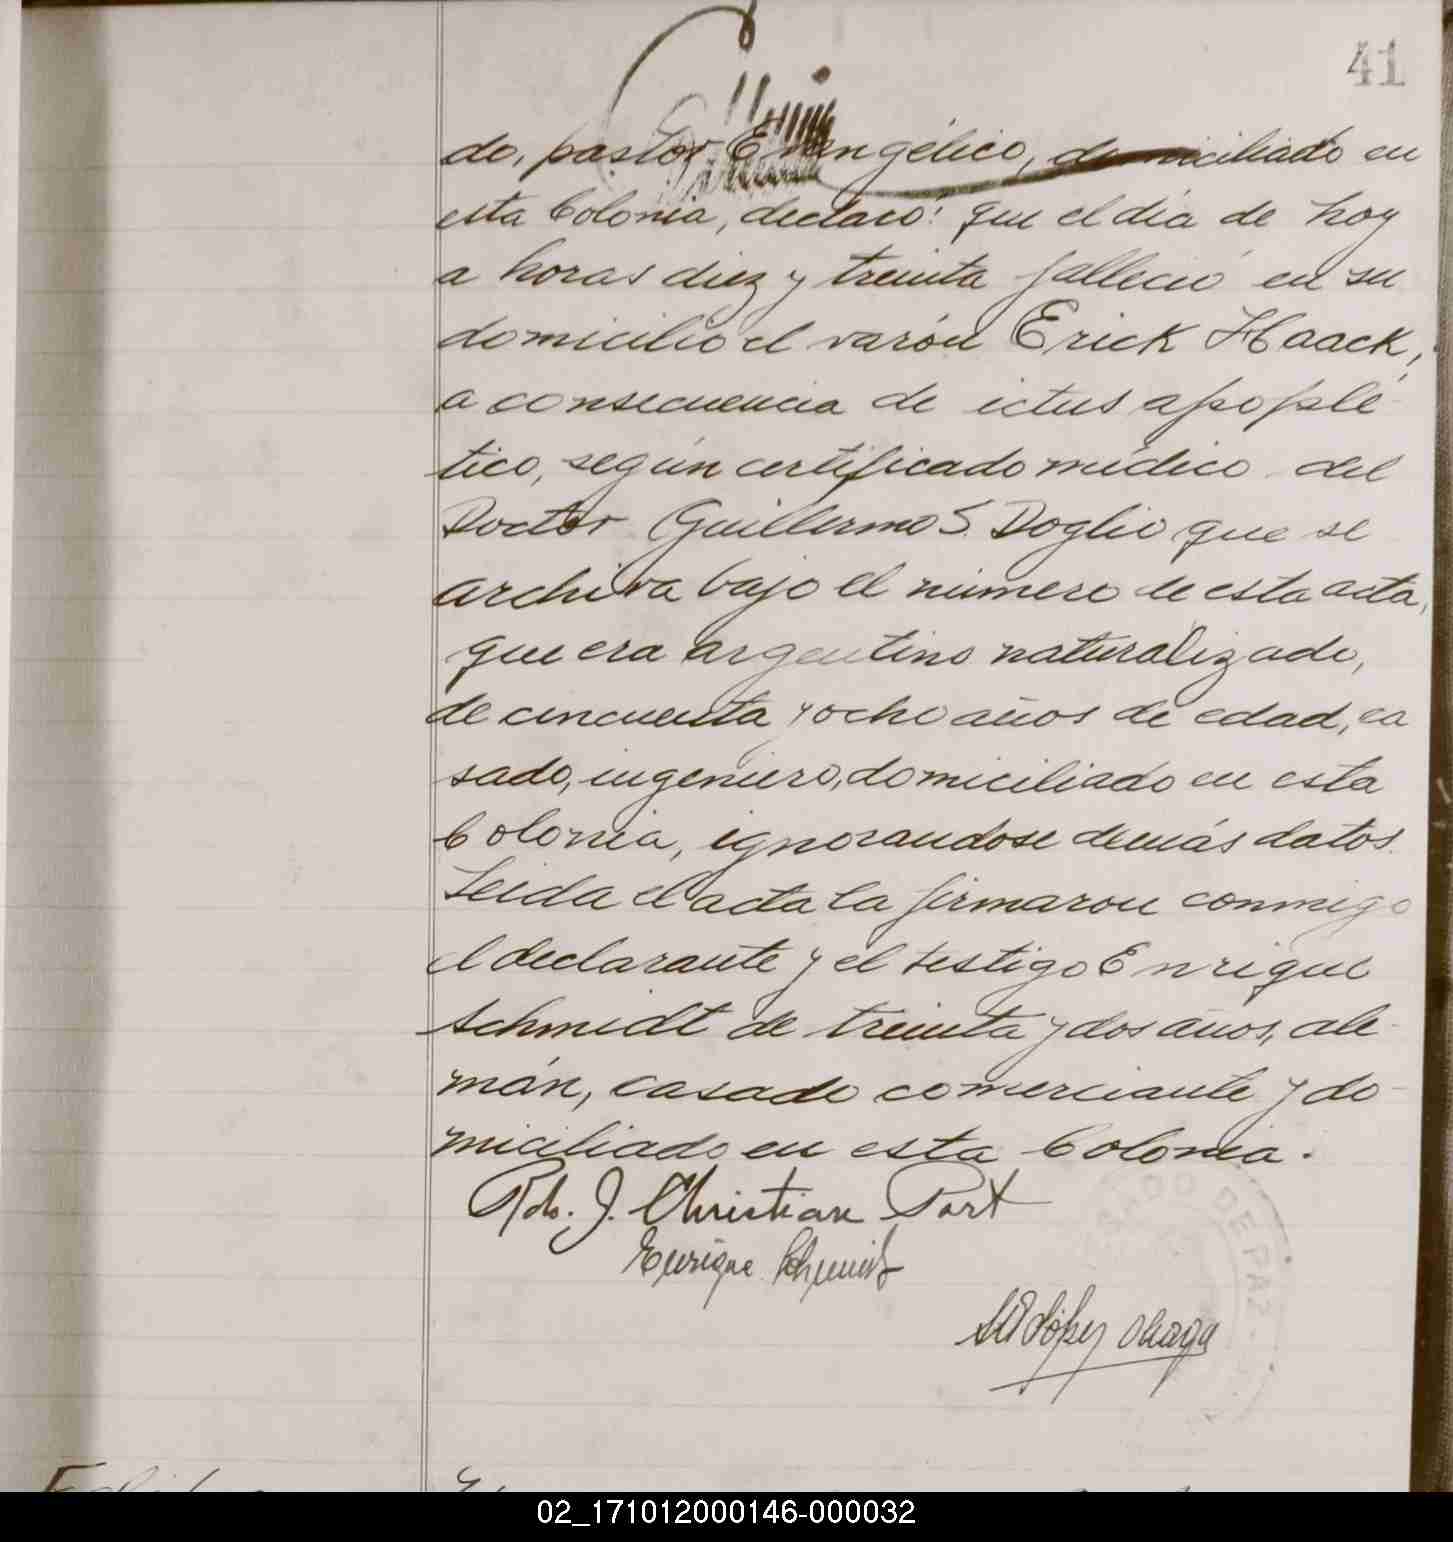 41
do, pastor Evangélico, domiciliado en
esta Colonia, declaró: que el día de hoy
a horas diez y treinta falleció en su
domicilio el varón Erick Haack,
a consecuencia de ictus apoplé
tico, según certificado médico del
Doctor Guillermo S. Doglio que se
archiva bajo el número de esta acta,
que era argentino naturalizado,
de cincuenta y ocho años de edad, ca
sado, ingeniero, domiciliado en esta
Colonia, ignorandose demás datos.
Leida el acta la firmaron conmigo
el declarante y el testigo Enrique
Schmidt de treinta y dos años, ale-
mán, casado comerciante y do-
miciliado en esta Colonia.
J. Christian Port
Enrique Schmidt
López
DE PAZ
02_171012000146-000032